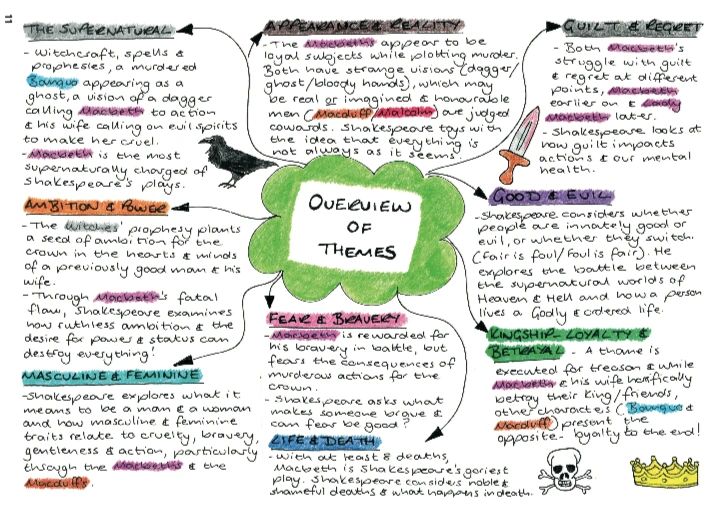 11
THE SUPERNATURAL
- Witchcraft, spells &
prophesies, a murdered
Banquo appearing as a
ghost, a vision of a dagger
calling Macbeth to action
& his wife calling on evil spirits
to make her cruel.
- Macbeth is the most
supernaturally charged of
Shakespeare's plays.
AMBITION & POWER
- The Witches' prophesy plants
a seed of ambition for the
crown in the hearts & minds
of a previously good man & his
wife.
- Through Macbeth's fatal
flaw, Shakespeare examines
how ruthless ambition & the
desire for power & status can
destroy everything!
MASCULINE & FEMININE
- Shakespeare explores what it
means to be a man & a woman
and how masculine & feminine
traits relate to cruelty, bravery,
gentleness & action, particularly
through the Macbeths & the
Macduffs.
APPEARANCE & REALITY
- The Macbeths appear to be
loyal subjects while plotting murder.
Both have strange visions (dagger/
ghost/bloody hands), which may
be real or imagined & honourable
men (Macduff/Malcolm) are judged
cowards. Shakespeare toys with
the idea that everything is
not always as it seems.
OVERVIEW
OF
THEMES
FEAR & BRAVERY
- Macbeth is rewarded for
his bravery in battle, but
fears the consequences of
murderous actions for the
crown.
- Shakespeare asks what
makes someone brave &
can fear be good?
LIFE & DEATH
- With at least 8 deaths,
Macbeth is Shakespeare's goriest
play. Shakespeare considers noble &
shameful deaths & what happens in death.
GUILT & REGRET
- Both Macbeth's
struggle with guilt
& regret at different
points, Macbeth
earlier on & Lady
Macbeth later.
- Shakespeare looks at
how guilt impacts
actions & our mental
health.
GOOD & EVIL
- Shakespeare considers whether
people are innately good or
evil, or whether they switch.
(Fair is foul/foul is fair). He
explores the battle between
the supernatural worlds of
Heaven & Hell and how a person
lives a Godly & ordered life.
KINGSHIP - LOYALTY &
BETRAYAL - A thane is
executed for treason & while
Macbeth & his wife horrifically
betray their King/friends,
other characters (Banquo &
Macduff) present the
opposite - loyalty to the end!